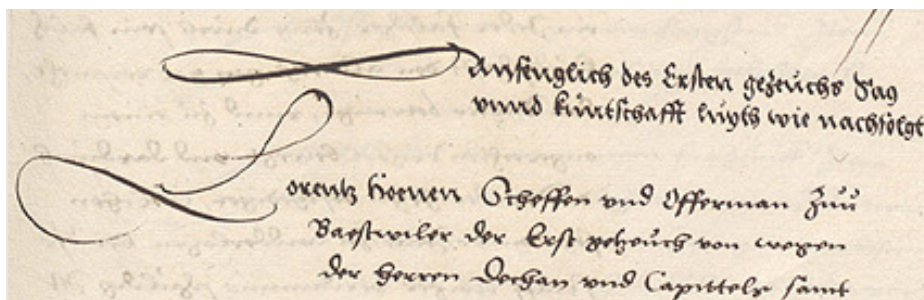 Anfenglich des Ersten gezeuchs Sag
vnnd kuntschafft luyth wie nachfolgt
Lorentz Scheffen vnd Offerman zuu
Baestwiler der Erst gezeuch von wegen
der herren Dechan vnd Capittels samt